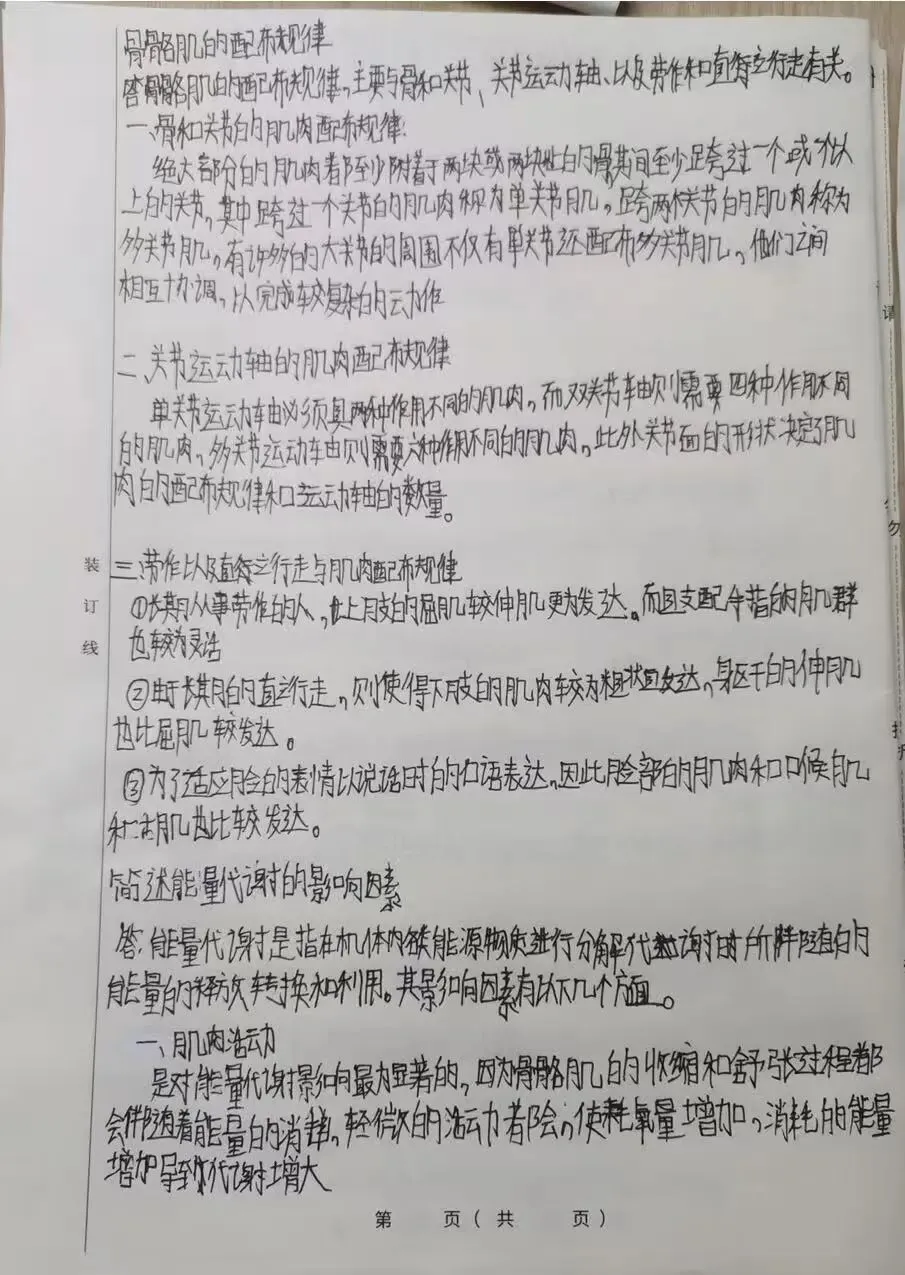 骨骼肌的配布规律
答:骨骼肌的配布规律,主要与骨和关节、关节运动轴、以及劳作和直立行走有关。
一、骨和关节的肌肉配布规律:
绝大部分的肌肉都至少附着于两块或两块以上的骨,其间至少跨过一个或个以
上的关节,其中跨过一个关节的肌肉称为单关节肌,跨两个关节的肌肉称为
多关节肌,有许多的大关节的周围不仅有单关节还配布多关节肌,他们之间
相互协调,以完成较复杂的动作
二、关节运动轴的肌肉配布规律
单关节运动轴必须具两种作用不同的肌肉,而双关节轴则需要四种作用不同
的肌肉,多关节运动轴则需要六种作用不同的肌肉,此外关节面的形状决定了肌
肉的配布规律和运动轴的数量。
三、劳作以及直立行走与肌肉配布规律
①长期从事劳作的人,他上肢的屈肌较伸肌更为发达。而且支配手指的肌群
也较为灵活
②由于长期的直立行走,则使得下肢的肌肉较为粗状且发达,身区干的伸肌
也比屈肌较发达。
③为了适应脸的表情以说话时的口语表达,因此脸部的肌肉和口喉肌
和舌肌也比较发达。
简述能量代谢的影响因素
答:能量代谢是指在机体内能源物质进行分解代谢时所伴随的
能量的释放转换和利用。其影响因素有以下几个方面。
一、肌肉活动
是对能量代谢影响最为显著的,因为骨骼肌的收缩和舒张过程都
会伴随着能量的消耗,轻微的活动都会,使耗氧量增加,消耗的能量
增加导致代谢增大
装
订
线
第 页(共 页)
请
勿